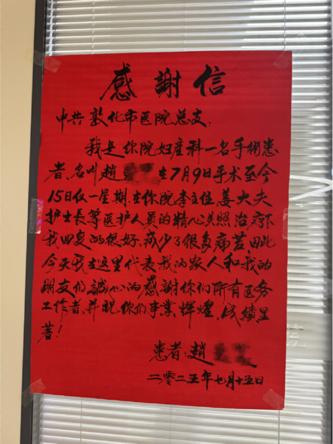 感謝信
中共敦化市医院总支：
我是你院妇産科一名手術患
者，名叫赵 在7月9日手术至今
15日仅一星期，在你院李主任姜大夫
护士长等医护人员的精心照治疗下
我回复的很好，减少了很多痛苦因此
今天我在这里代表我的家人和我的
朋友们誠心的感谢你们所有医务
工作者，并祝你们事業輝煌，成績显
著！
患者：赵
二〇二五年七月十五日